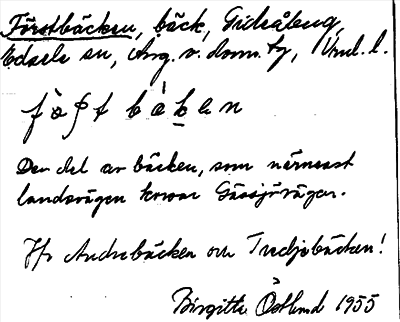 Förstbäcken, bäck, Gideåberg,
Edsele sn, Ång. v. doms. tg, Vnl. l.
Den del av bäcken, som närmast
landsvägen korsar Gåssjövägen.
Jfr Andrebäcken och Tredjebäcken!
Birgitta Östlund 1955